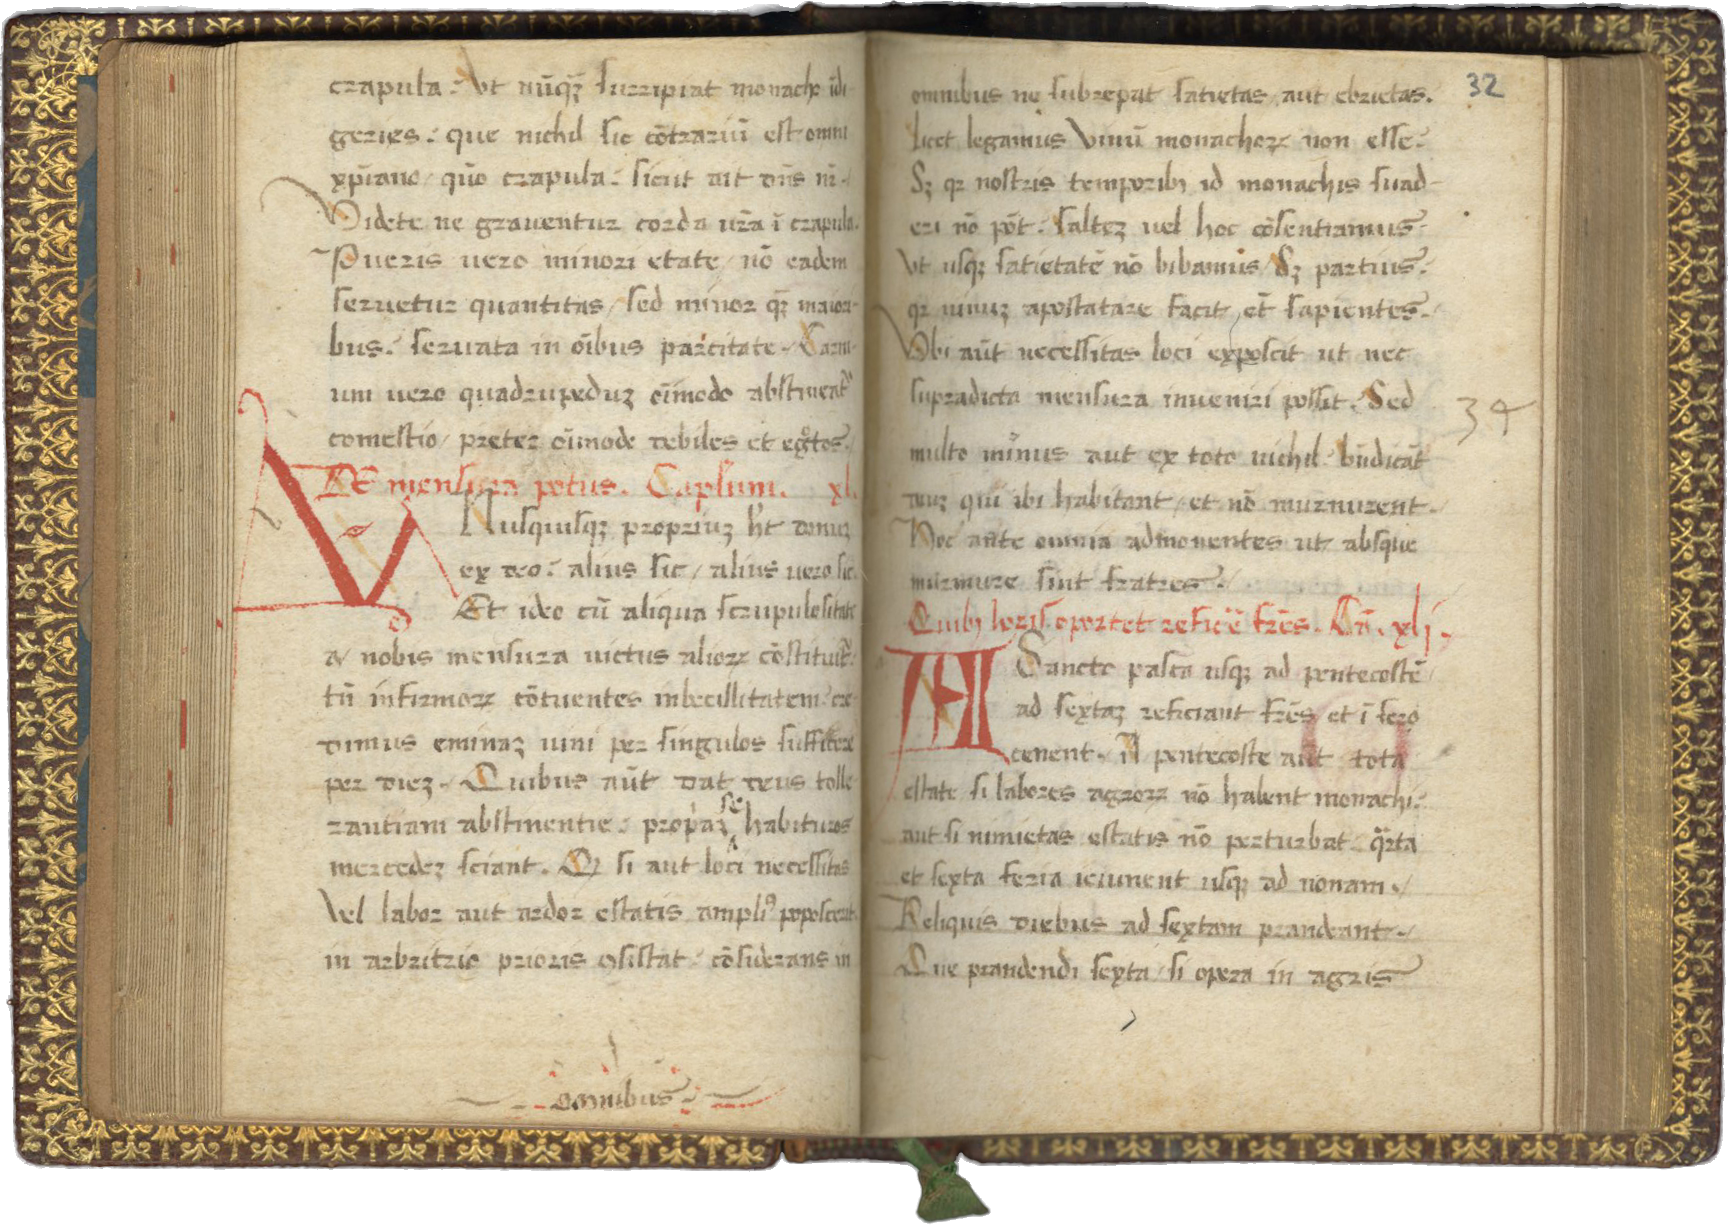 crapula. Vt nūqꝫ surripiat monacho īdi
geries. que nichil sic cōtrariū est omni
xp̄iano quō crapula. sicut ait dn̄s nr̄.
Videte ne grauentur corda ur̄a ī crapula.
Pueris uero minori etate nō eadem
seruetur quantitas, sed minor qꝫ maiori
bus. seruata in oībus parcitate. Carni
um uero quadrupeduꝫ oīmodo abstineat᷑
comestio, preter oīmodo debiles et egrotos.
DE mensura potus. Capl'um. xl.
Vnusquisqꝫ propriuꝫ h't donuꝫ
ex deo. alius sic, alius uero sic.
Et ideo cū aliqua scrupulositate
a nobis mensura uictus alioꝝ cōstituit᷑.
tn̄ infirmoꝝ cōtuentes inbecillitatem. cre
dimus eminaꝫ uini per singulos sufficere
per dieꝫ. Quibus aūt dat deus tolle
rantiam abstinentie. propriaꝫ se habituros
mercedeꝫ sciant. Qꝫ si aut loci necessitas
Vel labor aut ardor estatis ampliꝰ poposcerit.
in arbritrio prioris ꝯsistat. cōsiderans in
omnibus
32
omnibus ne subrepat satietas aut ebrietas.
licet legamus Vinū monachoꝝ non esse.
Sꝫ qr nostris temporibꝫ id monachis suad
eri nō pōt. salteꝫ uel hoc cōsentiamus.
Vt usqꝫ satietatē nō bibamus, Sꝫ parcius.
qr uinuꝫ apostatare facit, et̄ sapientes.
Vbi aūt necessitas loci exposcit ut nec
supradicta mensura inueniri possit. Sed
34
multo minus aut ex toto nichil. bn̄dicāt
deuꝫ qui ibi habitant, et nō murmurent.
Hoc ante omnia admonentes ut absque
murmure sint fratres.
Quibꝫ horis oportet reficē fr̄es. Ca. xlj.
A Sancto pasca usqꝫ ad pentecostē
ad sextaꝫ reficiant fr̄es et ī sero
cenent. A pentecoste aūt tota
estate si labores agroꝝ nō habent monachi.
aut si nimietas estatis nō perturbat. qrta
et sexta feria ieiunent usqꝫ ad nonam.
Reliquis diebus ad sextam prandeant.
Que prandendi sexta, si opera in agris